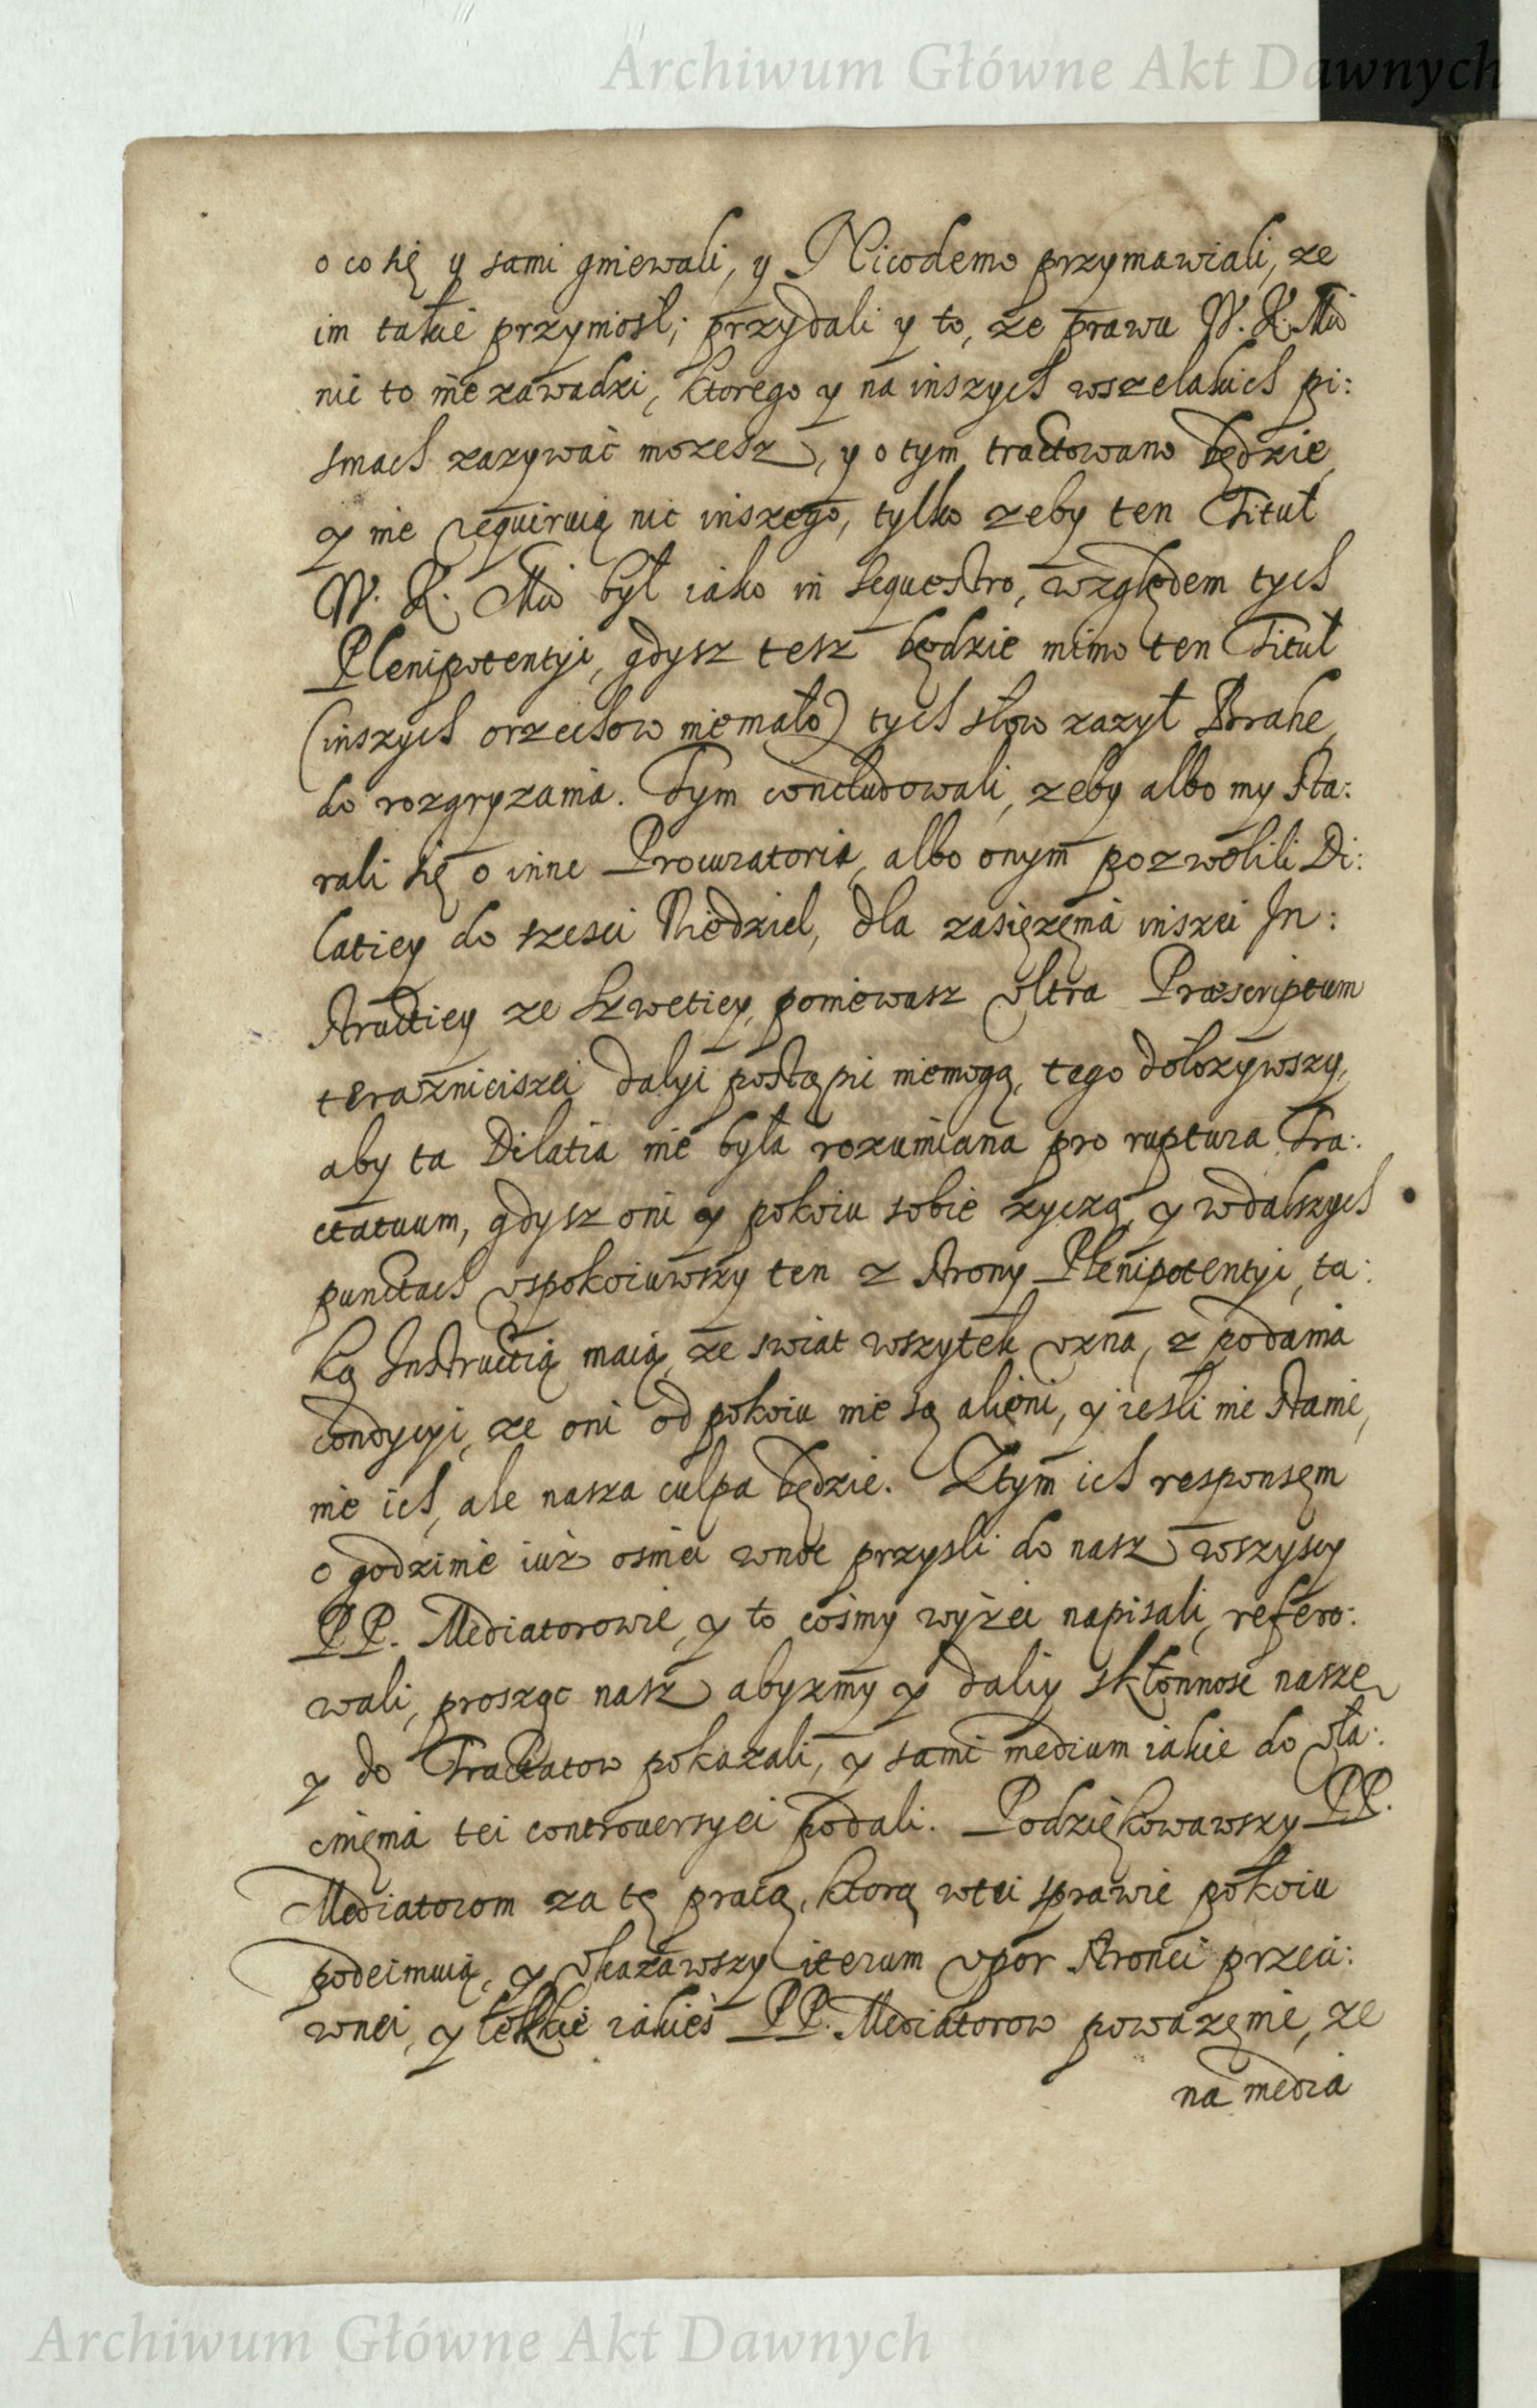 Archiwum Główne Akt Dawnych
o co się y sami gniewali, y Nicodemo przymawiali, ze
im takie przyniosł; przydali y to, ze prawu W. K. Mći
nic to nie zawadzi, ktorego y na inszych wszelakich pi:
smach zazywać mozesz, y o tym tractowano będzie,
y nie requiruią nic inszego, tylko zeby ten Titul
W. K. Mći był iako in sequestro, względem tych
Plenipotentyi, gdysz tesz będzie mimo ten Tituł
(inszych orzechow niemało) tych słow zazył Brahe,
do rozgryzania. Tym concludowali, zeby albo my sta:
rali się o inne Procuratoria, albo onym pozwolili Di:
latiey do szesci Niedziel, dla zasięzęnia inszei In:
structiey ze Szwetiey, poniewasz vltra Præscriptum
terazniciszei dalyi postąpic niemogą, tego dołozywszy,
aby ta Dilatia nie była rozumiana pro ruptura Tra:
ctatuum, gdysz oni y pokoiu sobie zyczą, y w dalszych
punctach vspokoiuwszy ten z strony Plenipotentyi, ta:
ką Instructią maią, ze swiat wszytek vzna, z podania
condycyi, ze oni od pokoiu nie są alieni, y iesli nie stanie,
nie ich, ale nasza culpa będzie. Z tym ich responsem
o godzinie iuż osmei w noc przysli do nasz wszyscy
PP. Mediatorowie, y to cosmy wyżei napisali, refero:
wali, prosząc nasz abyzmy y daliy skłonnosc nasze
y do Tractatow pokazali, y sami medium iakie do vła:
cnięnia tei controversyei podali. Podziękowawszy PP.
Mediatorom za tę pracą, ktorą w tei sprawie pokoiu
podeimuią, y vkazawszy iterum vpor stronei przeci:
wnei, y lekkie iakieś PP. Mediatorow powazęnie, ze
na media
Archiwum Główne Akt Dawnych